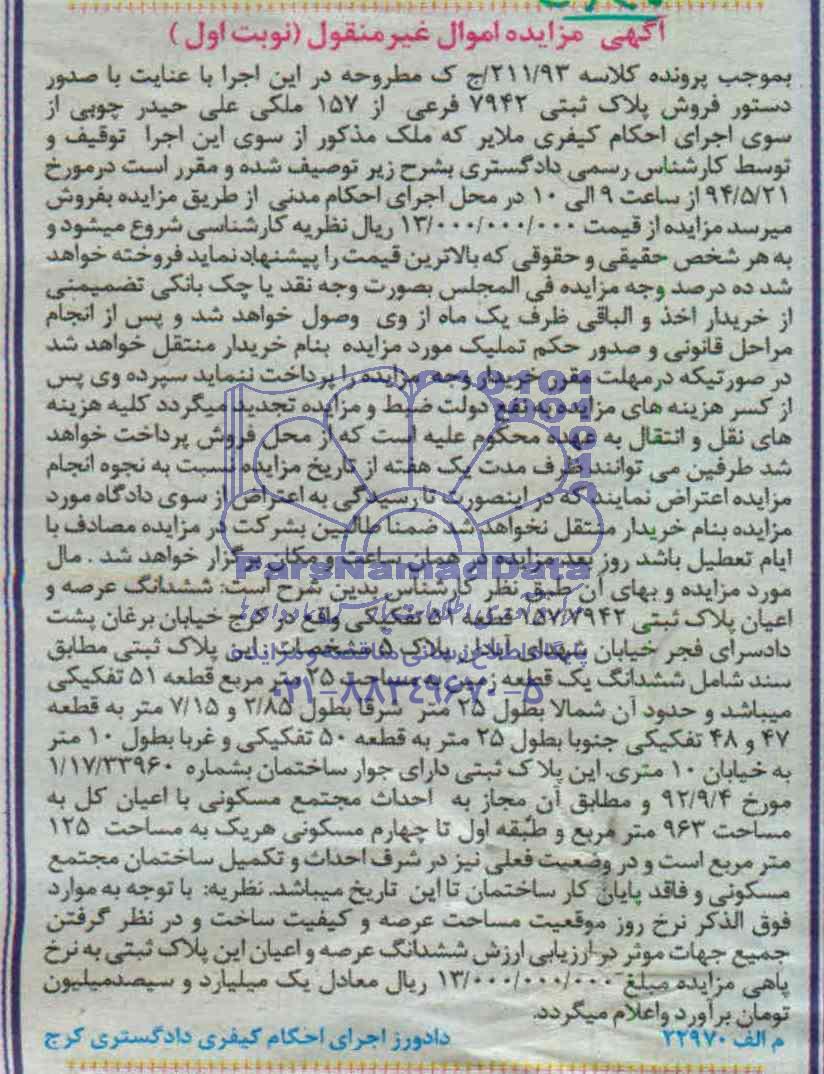 آگهی مزایده اموال غیر منقول (نوبت اول)
بموجب پرونده کلاسه ۲۱۱/۹۳/ج ک مطروحه در این اجرا با عنایت با صدور
دستور فروش پلاک ثبتی ۷۹۴۲ فرعی از ۱۵۷ ملکی علی حیدر چوبی از
سوی اجرای احکام کیفری ملایر که ملک مذکور از سوی این اجرا توقیف و
توسط کارشناس رسمی دادگستری بشرح زیر توصیف شده و مقرر است درمورخ
۹۴/۵/۲۱ از ساعت ۹ الی ۱۰ در محل اجرای احکام مدنی از طریق مزایده بفروش
میرسد مزایده از قیمت ۱۳/۰۰۰/۰۰۰/۰۰۰ ریال نظریه کارشناسی شروع میشود و
به هر شخص حقیقی و حقوقی که بالاترین قیمت را پیشنهاد نماید فروخته خواهد
شد ده درصد وجه مزایده فی المجلس بصورت وجه نقد یا چک بانکی تضمیمنی
از خریدار اخذ و الباقی ظرف یک ماه از وی وصول خواهد شد و پس از انجام
مراحل قانونی و صدور حکم تملیک مورد مزایده بنام خریدار منتقل خواهد شد
در صورتیکه درمهلت مقرر خریدار وجه مزایده را پرداخت ننماید سپرده وی پس
از کسر هزینه های مزایده به نفع دولت ضبط و مزایده تجدید میگردد کلیه هزینه
های نقل و انتقال به عهده محکوم علیه است که از محل فروش پرداخت خواهد
شد طرفین می توانند ظرف مدت یک هفته از تاریخ مزایده نسبت به نحوه انجام
مزایده اعتراض نمایند که در اینصورت تا رسیدگی به اعتراض از سوی دادگاه مورد
مزایده بنام خریدار منتقل نخواهد شد ضمنا طالبین بشرکت در مزایده مصادف با
ایام تعطیل باشد روز بعد مزایده در همان ساعت و مکان برگزار خواهد شد . مال
ParsNamadData
مورد مزایده و بهای آن طبق نظر کارشناس بدین شرح است: ششدانگ عرصه و
اعیان پلاک ثبتی ۱۵۷/۷۹۴۲ قطعه ۵۱ تفکیکی واقع در کرج خیابان برغان پشت
دادسرای فجر خیابان شهدای آبادان پلاک ۵ مشخصات: این پلاک ثبتی مطابق
پایگاه اطلاع رسانی مناقصه و مزایده
سند شامل ششدانگ یک قطعه زمین به مساحت ۲۵ متر مربع قطعه ۵۱ تفکیکی
۰۲۱-۸۸۳۴۹۶۷۰-۵
میباشد و حدود آن شمالا بطول ۲۵ متر شرقا بطول ۲/۸۵ و ۷/۱۵ متر به قطعه
۴۷ و ۴۸ تفکیکی جنوبا بطول ۲۵ متر به قطعه ۵۰ تفکیکی و غربا بطول ۱۰ متر
به خیابان ۱۰ متری. این پلاک ثبتی دارای جوار ساختمان بشماره ۱/۱۷/۳۳۹۶۰
مورخ ۹۲/۹/۴ و مطابق آن مجاز به احداث مجتمع مسکونی با اعیان کل به
مساحت ۹۶۳ متر مربع و طبقه اول تا چهارم مسکونی هریک به مساحت ۱۲۵
متر مربع است و در وضعیت فعلی نیز در شرف احداث و تکمیل ساختمان مجتمع
مسکونی و فاقد پایان کار ساختمان تا این تاریخ میباشد. نظریه: با توجه به موارد
فوق الذکر نرخ روز موقعیت مساحت عرصه و کیفیت ساخت و در نظر گرفتن
جمیع جهات موثر در ارزیابی ارزش ششدانگ عرصه و اعیان این پلاک ثبتی به نرخ
پاهی مزایده مبلغ ۱۳/۰۰۰/۰۰۰/۰۰۰ ریال معادل یک میلیارد و سیصدمیلیون
تومان برآورد واعلام میگردد.
م الف ۲۲۹۷۰ دادورز اجرای احکام کیفری دادگستری کرج